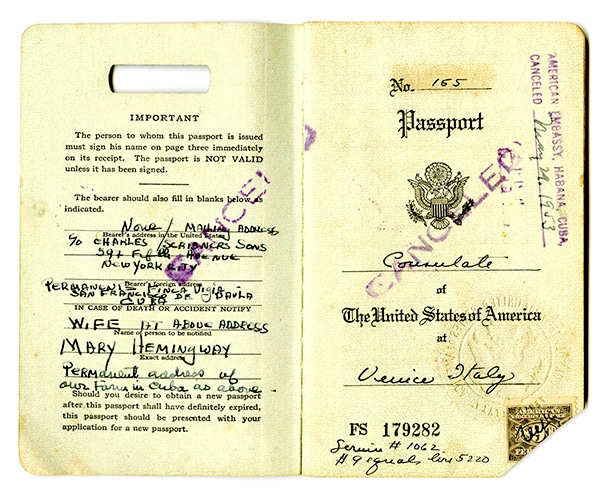 IMPORTANT
The person to whom this passport is issued
must sign his name on page three immediately
on its receipt. The passport is NOT VALID
unless it has been signed.
The bearer should also fill in blanks below as
indicated.
None / MAILING ADDRESS
Bearer's address in the United States
c/o CHARLES SCRIBNERS SONS
597 Fifth AVENUE
NEW YORK CITY
Bearer's foreign address
PERMANENTE FINCA Vigia
SAN FRANCISCO DE PAULA
CUBA
IN CASE OF DEATH OR ACCIDENT NOTIFY
WIFE AT ABOVE ADDRESS
Name of person to be notified
MARY HEMINGWAY
Exact address
PERMANENT address of
our Farm in Cuba as above
Should you desire to obtain a new passport
after this passport shall have definitely expired,
this passport should be presented with your
application for a new passport.
CANCELED
No. 165
Passport
AMERICAN EMBASSY, HABANA, CUBA,
CANCELED May 21, 1953
CANCELED
Consulate
of
The United States of America
at
Venice Italy
FS 179282
Service # 1062
AMERICAN